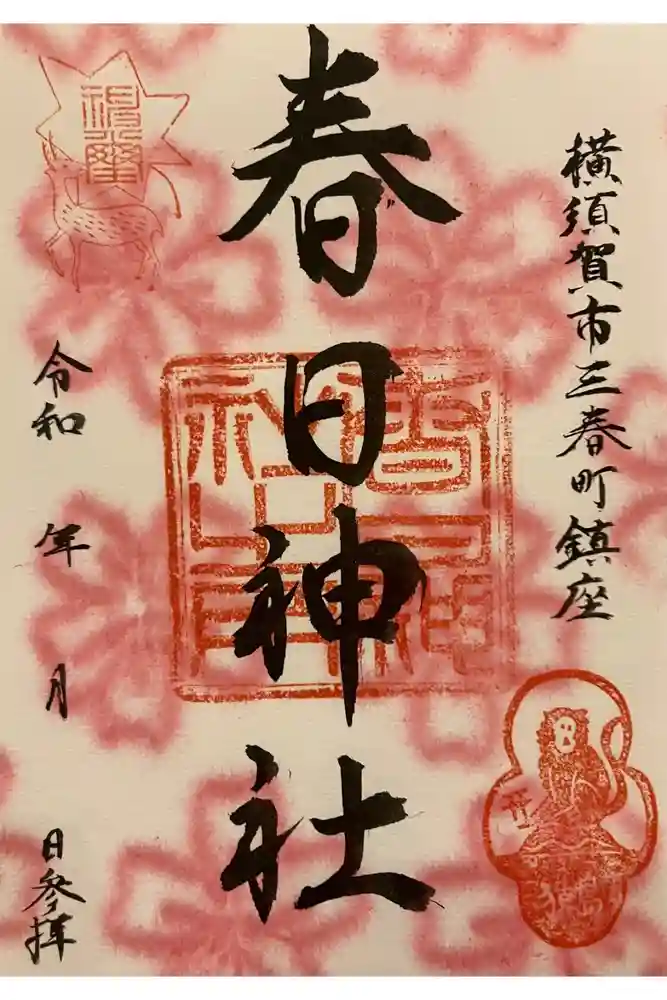 横須賀市三春町鎮座
春日神社
令和 年 月
日参拝
猿島